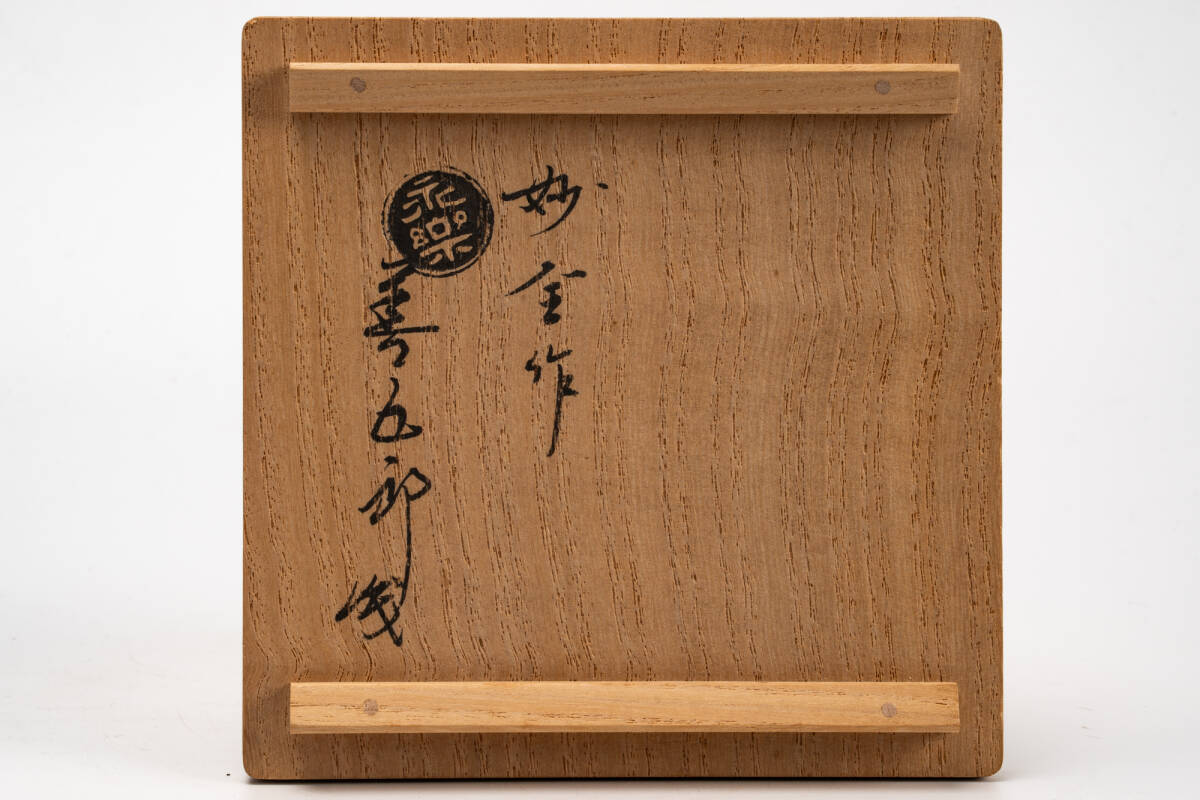 妙全作
永樂
善五郎